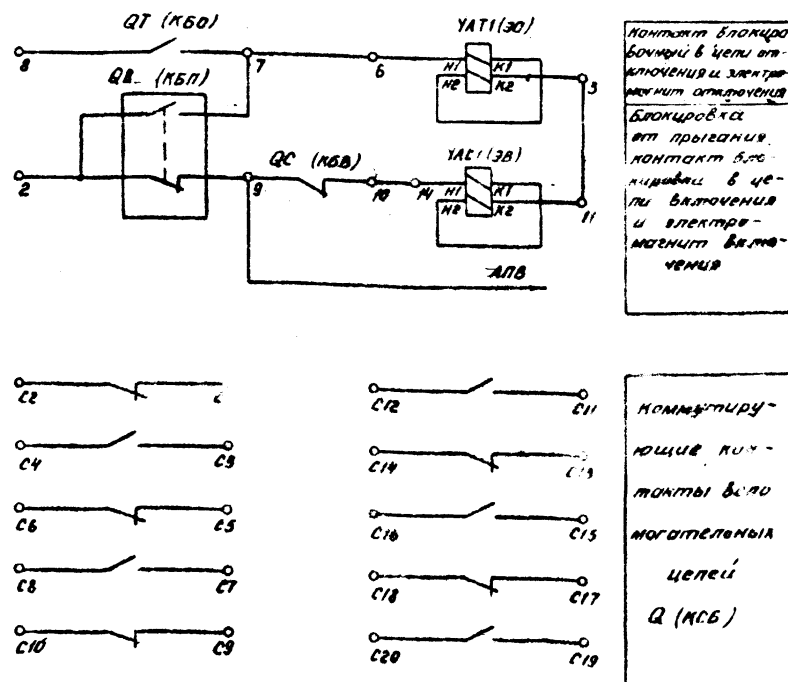 QT (КБО)
YAT1 (ЭО)
8
7
6
Н1
К1
Н2
К2
3
(КБП)
QC (КБВ)
YAC1 (ЭВ)
2
9
10
14
Н1
К1
Н2
К2
11
АПВ
контакт блокиро
вочный в цепи от-
ключения и электро-
магнит отключения
Блокировка
от прыгания
контакт бло-
кировки в це-
пи включения
и электро-
магнит вклю-
чения
С2
С12
С11
С4
С3
С14
С13
С6
С5
С16
С15
С8
С7
С18
С17
С10
С9
С20
С19
коммутиру-
ющие кон-
такты вспо
могательных
цепей
Q (КСБ)